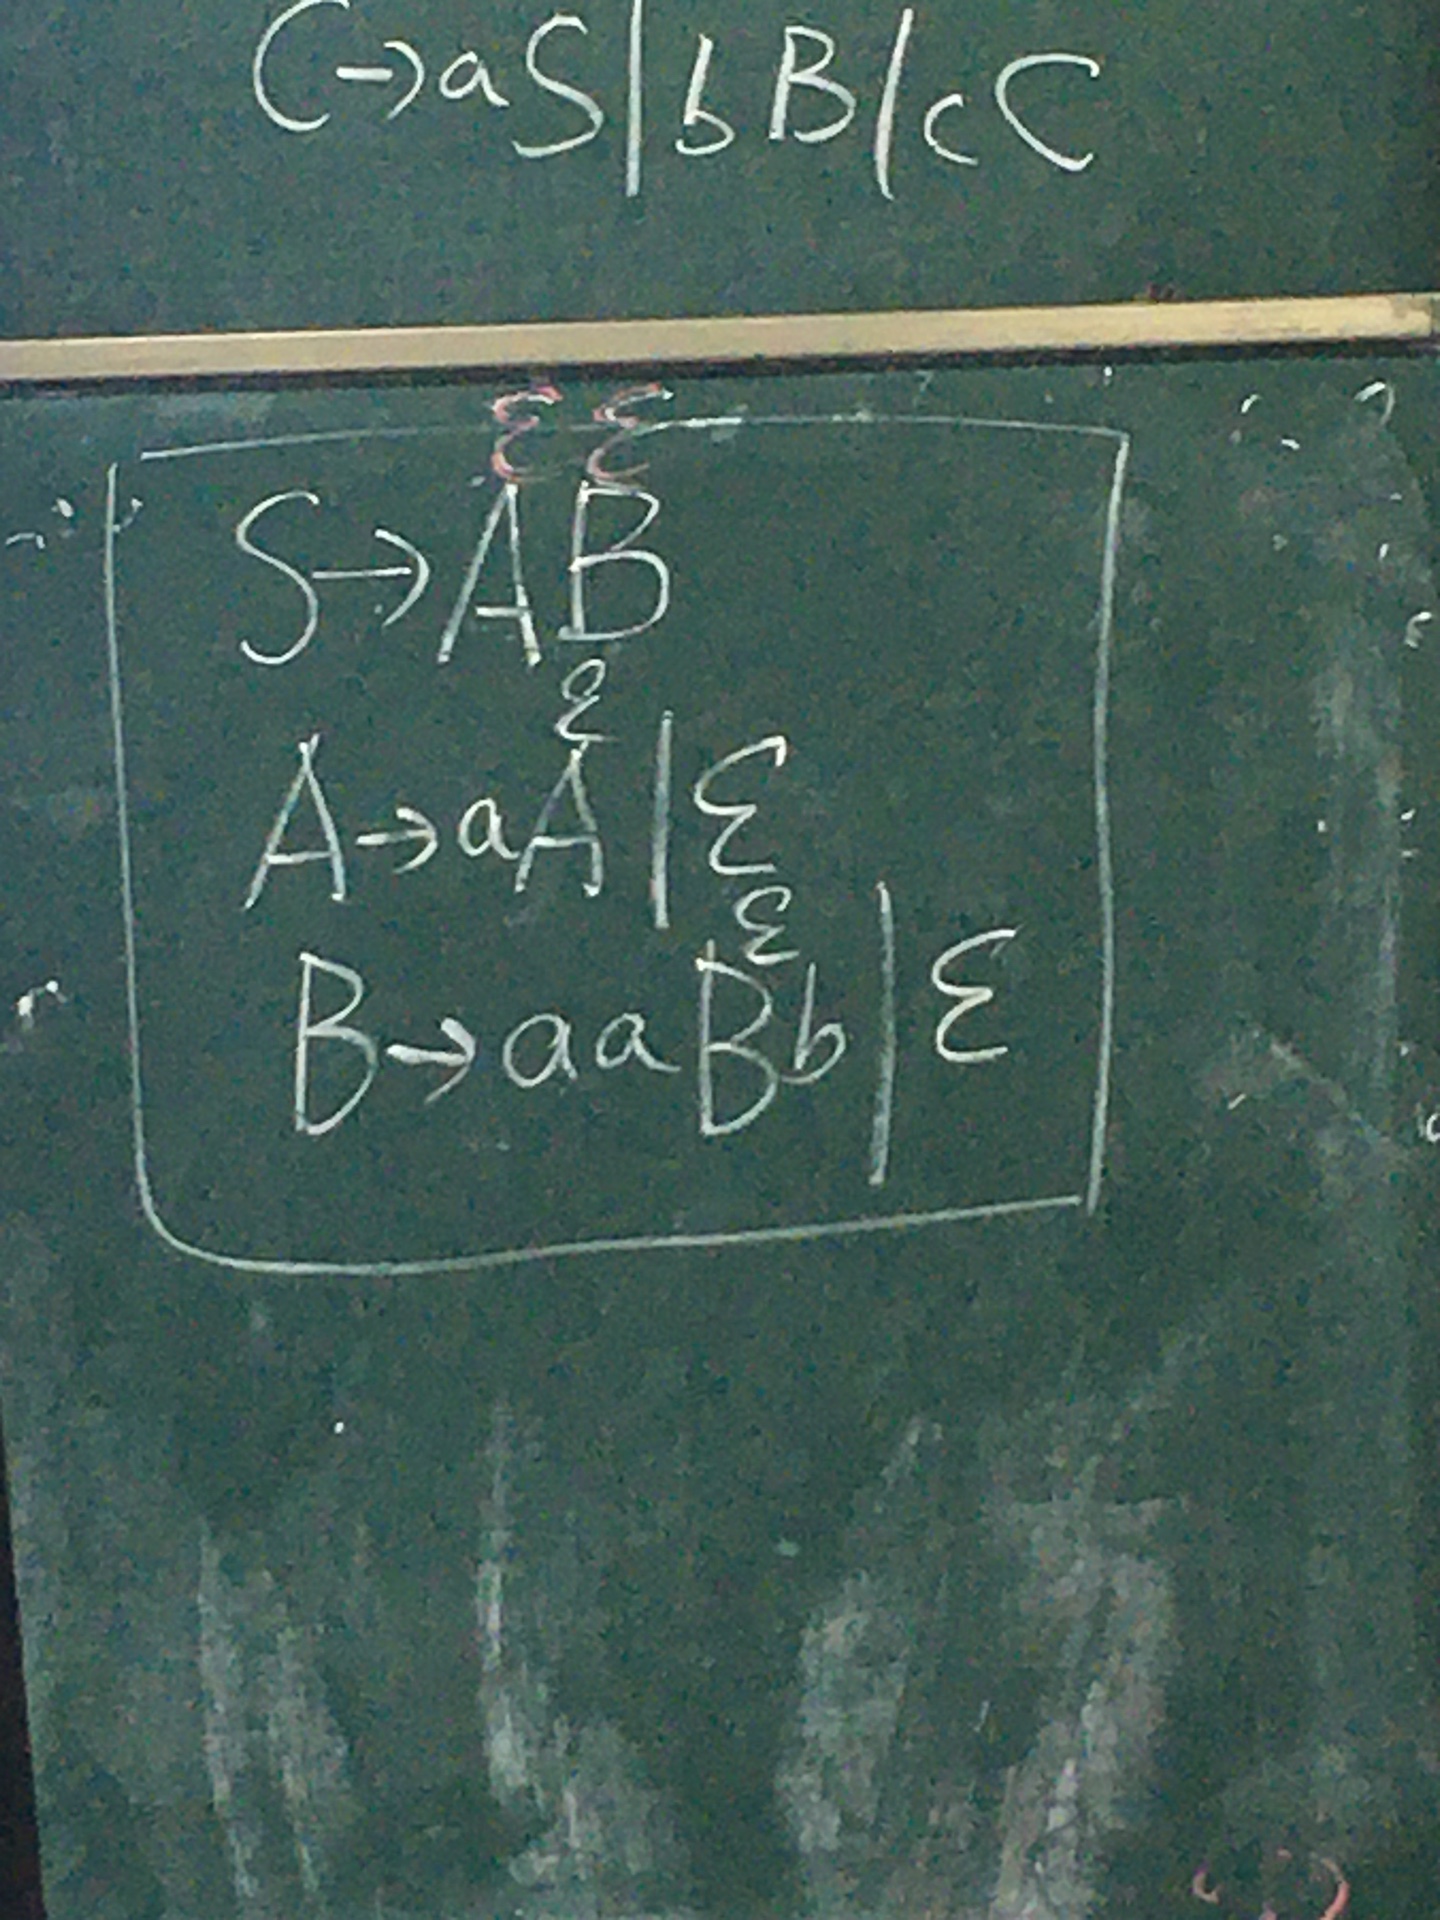 C→aS|bB|cC
ε ε
S→AB
ε
A→aA|ε
ε
B→aaBb|ε